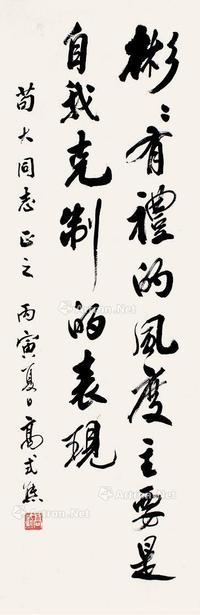 彬〻有禮的風度主要是
自我克制的表現
荀大同志正之 丙寅夏日 高式熊